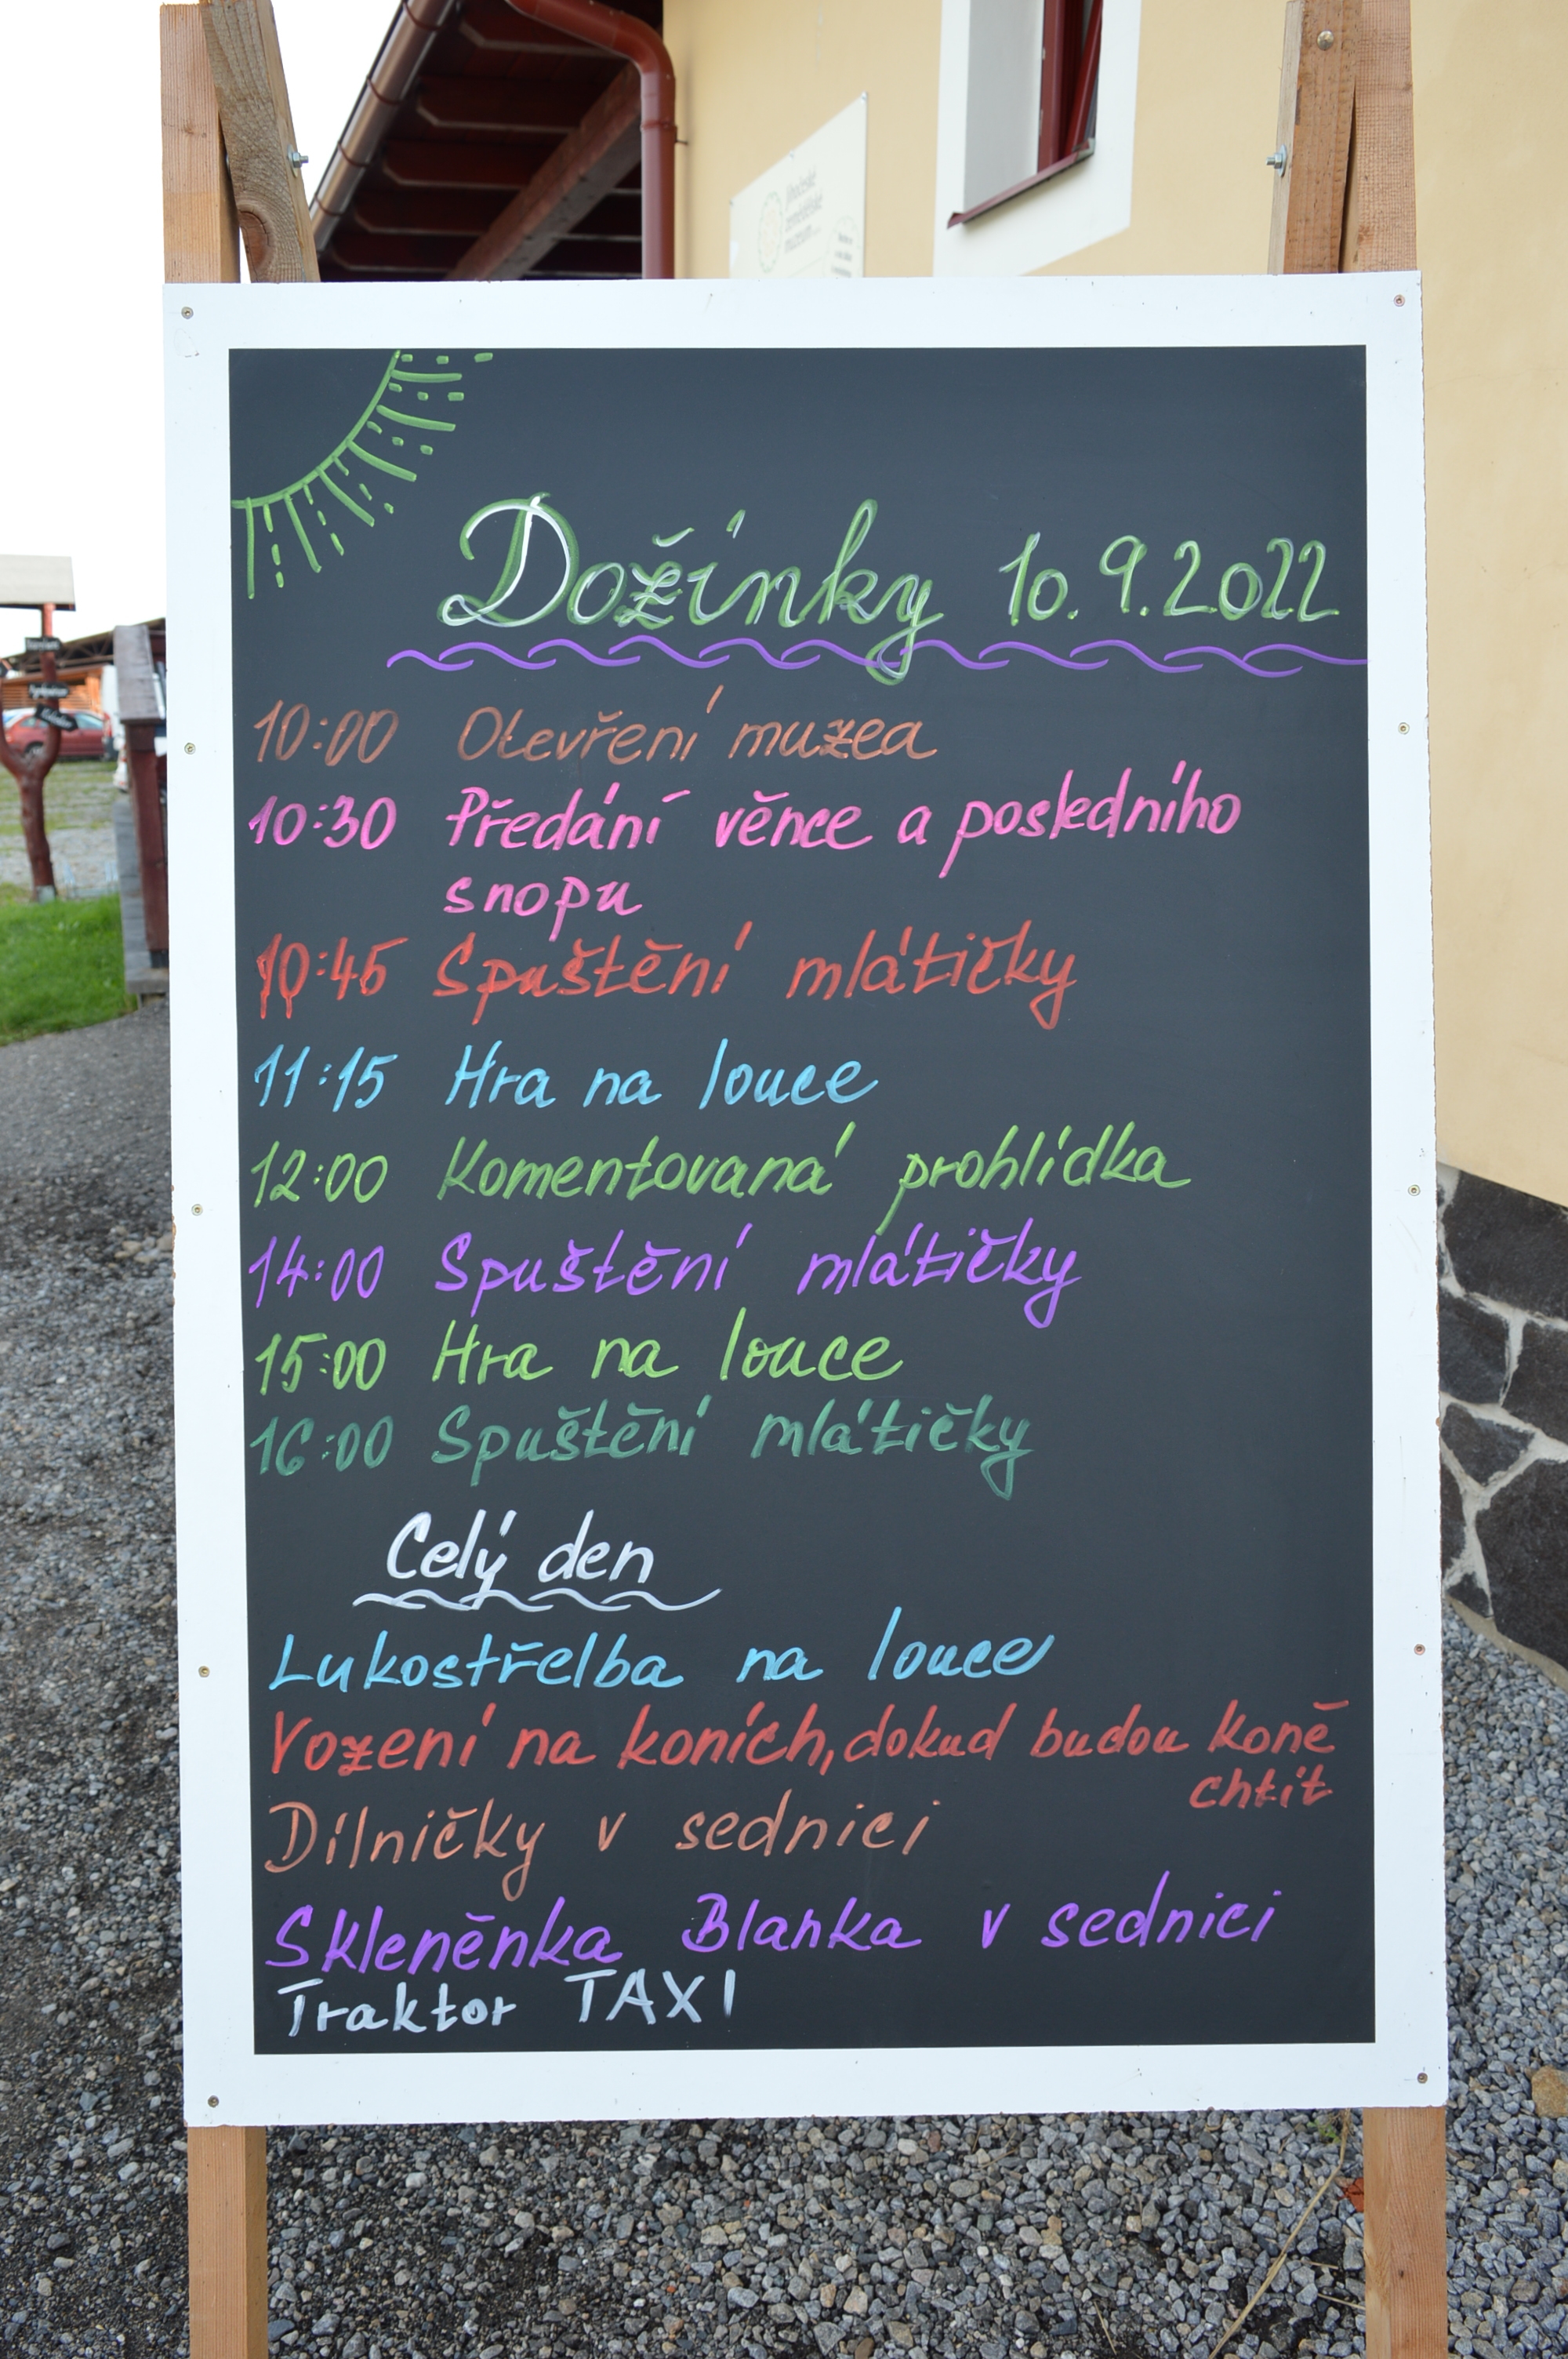 Jihočeské
zemědělské
muzeum
Dožínky 10.9.2022
10:00 Otevření muzea
10:30 Předání věnce a posledního
snopu
10:45 Spuštění mlátičky
11:15 Hra na louce
12:00 Komentovaná prohlídka
14:00 Spuštění mlátičky
15:00 Hra na louce
16:00 Spuštění mlátičky
Celý den
Lukostřelba na louce
Vození na koních, dokud budou koně
chtít
Dílničky v sednici
Skleněnka Blanka v sednici
Traktor TAXI